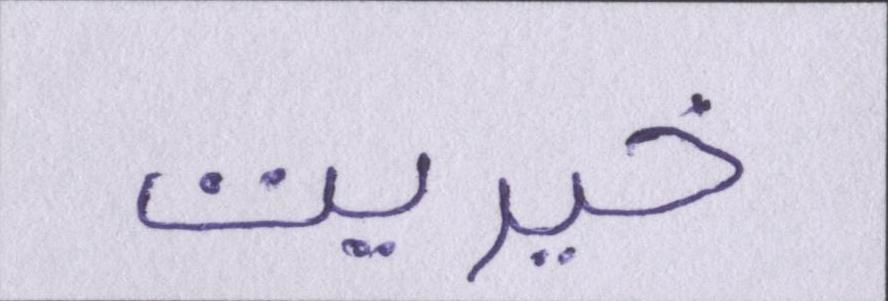 خیریت